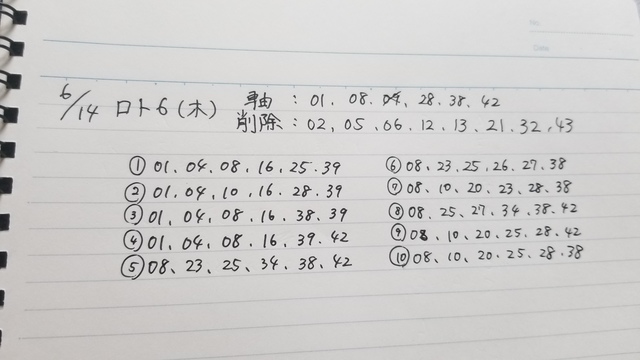 6/14 ロト6(木) 軸:01.08.09.28.38.42
削除:02、05、06.12、13、21.32、43
①01.04.08.16.25.39
②01.04.10.16.28.39
③01.04.08.16.38.39
④01.04.08.16.39.42
⑤08、23、25、34、38、42
⑥08.23.25.26.27.38
⑦08.10.20.23.28.38
⑧08.25.27.34.38.42
⑨08.10.20.25.28.42
⑩08、10、20.25.28.38
No.
Date